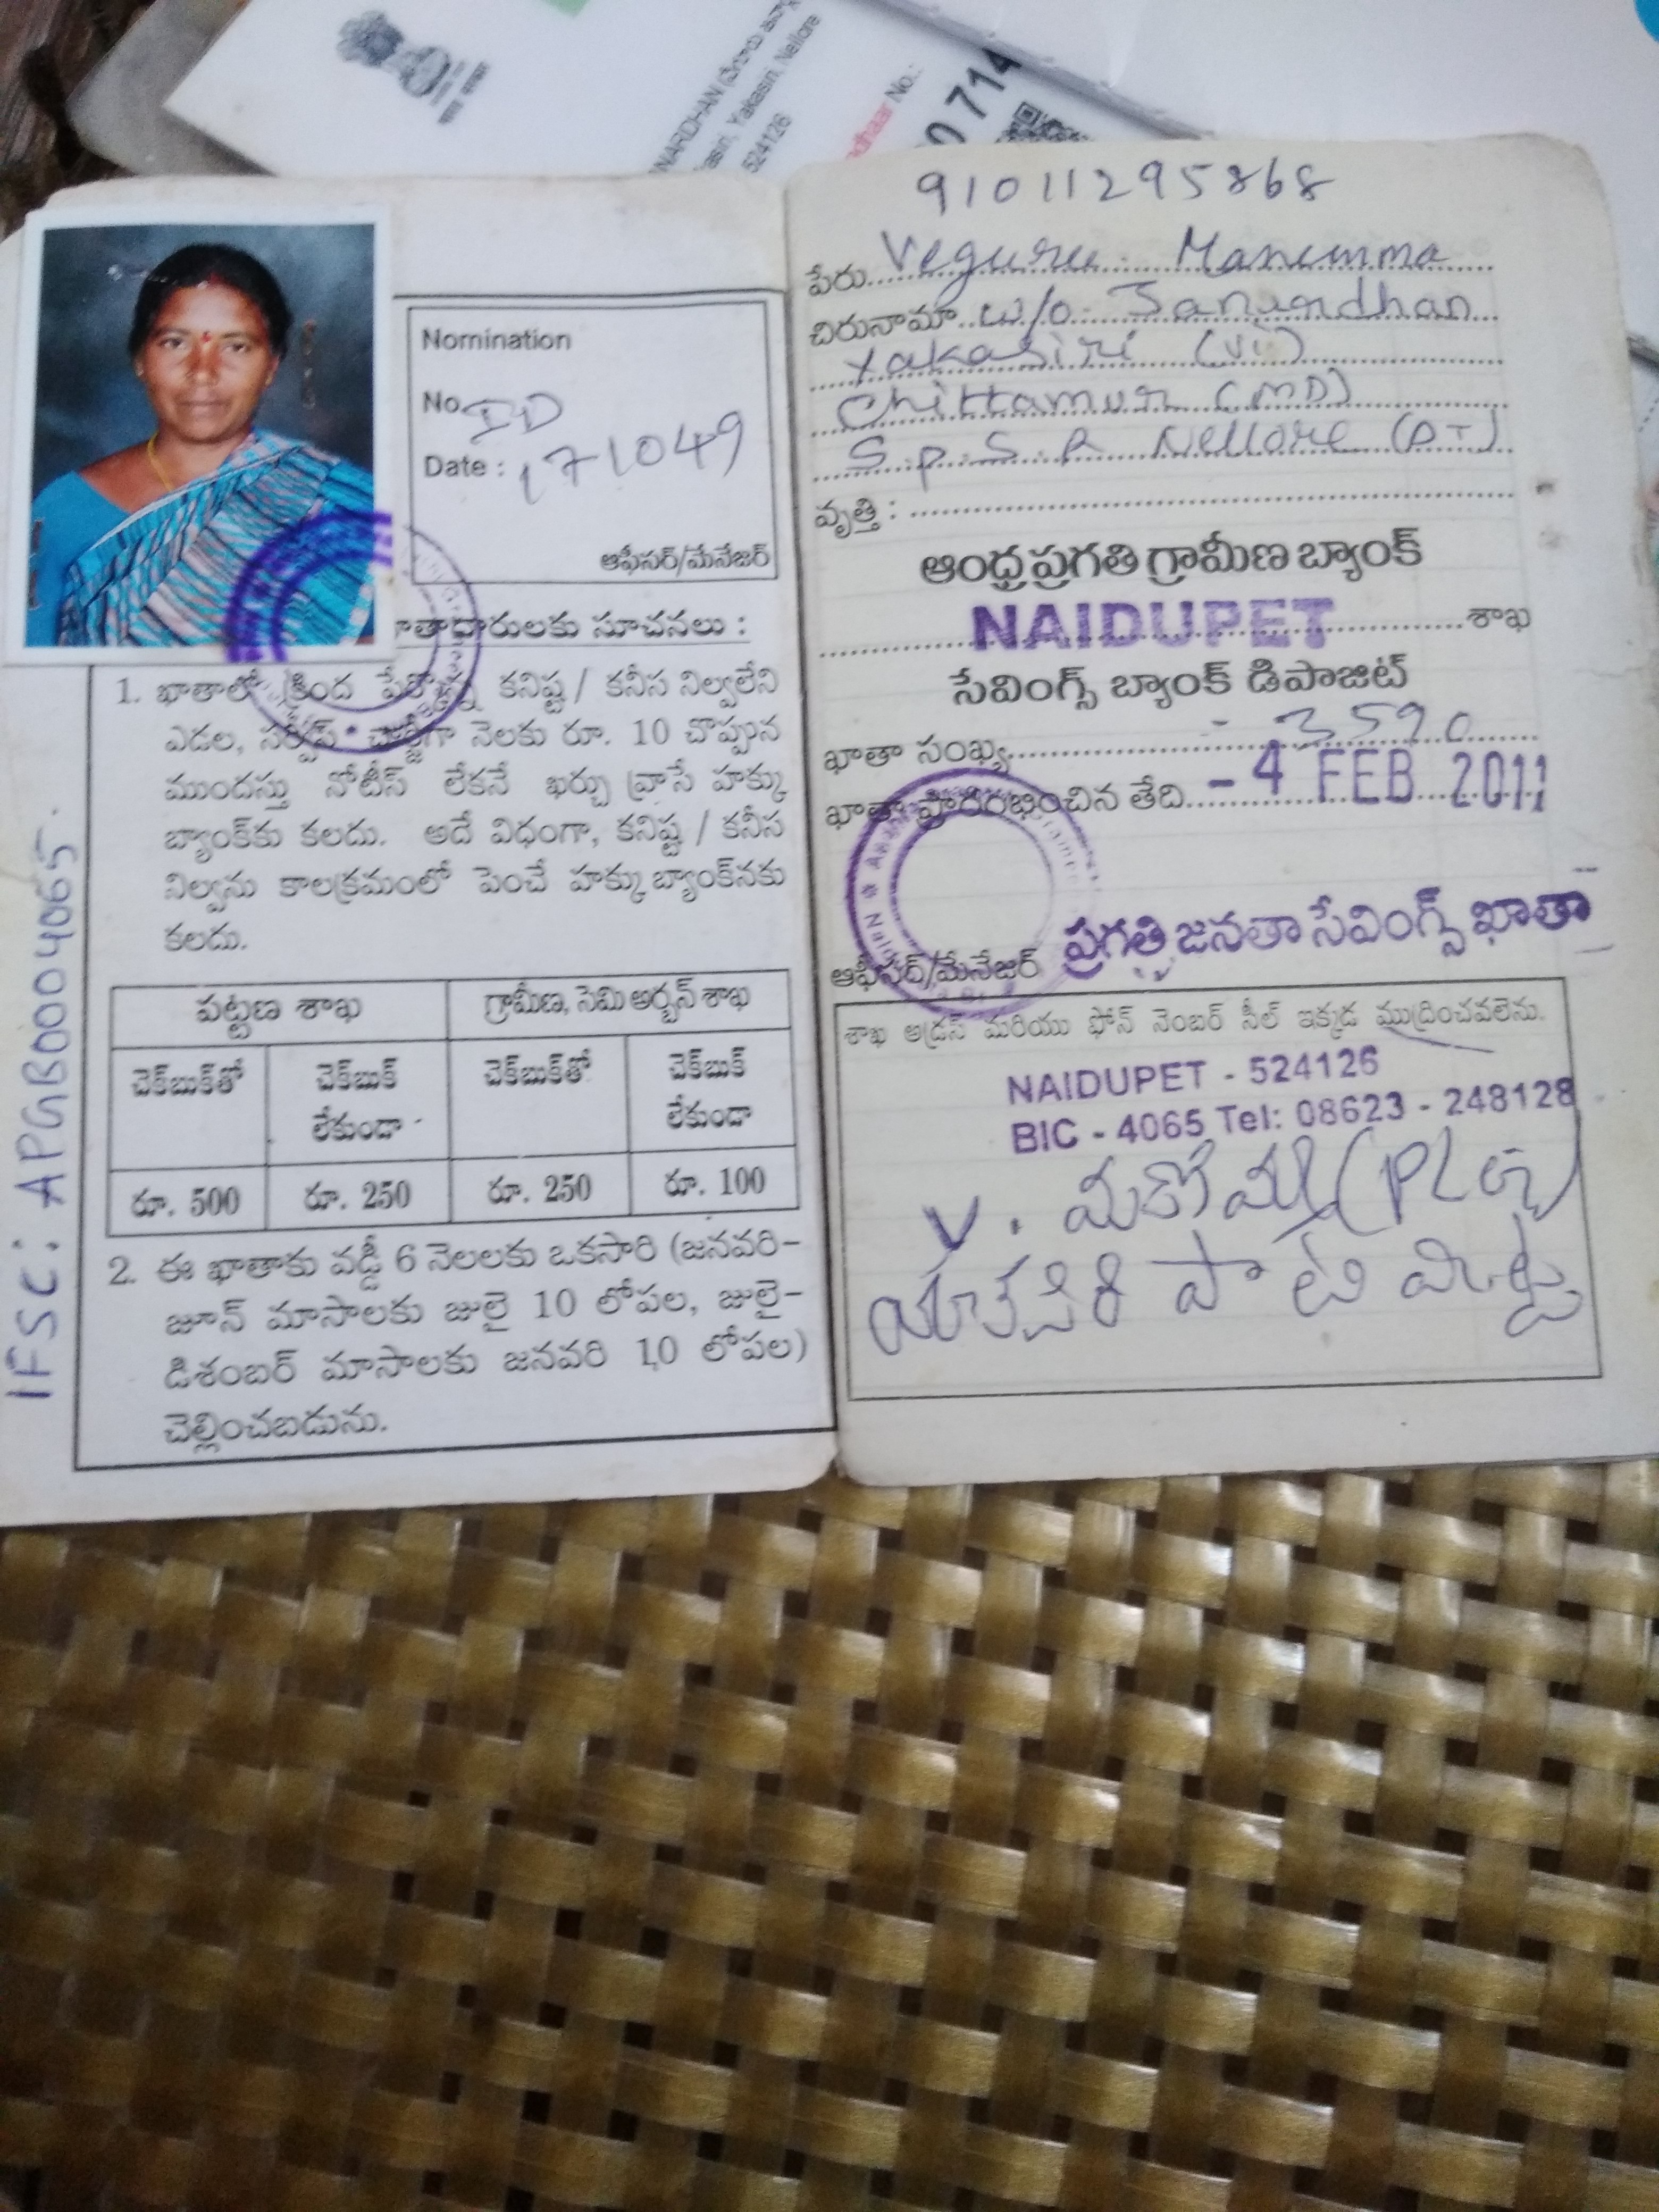 NARDHAN
Yakasiri, Nellore
524126
Aadhaar No.:
0 714
Nomination
No. ID
Date : 171049
ఆఫీసర్/మేనేజర్
ఖాతాదారులకు సూచనలు :
1. ఖాతాలో క్రింద పేర్కొన్న కనిష్ట / కనీస నిల్వలేని
ఎడల, సర్వీస్ చార్జీగా నెలకు రూ. 10 చొప్పున
ముందస్తు నోటీస్ లేకనే ఖర్చు వ్రాసే హక్కు
బ్యాంక్‌కు కలదు. అదే విధంగా, కనిష్ట / కనీస
నిల్వను కాలక్రమంలో పెంచే హక్కు బ్యాంక్‌నకు
కలదు.
పట్టణ శాఖ గ్రామీణ, సెమి అర్బన్ శాఖ
చెక్‌బుక్‌తో చెక్‌బుక్ లేకుండా చెక్‌బుక్‌తో చెక్‌బుక్ లేకుండా
రూ. 500 రూ. 250 రూ. 250 రూ. 100
2. ఈ ఖాతాకు వడ్డీ 6 నెలలకు ఒకసారి (జనవరి-
జూన్ మాసాలకు జులై 10 లోపల, జులై-
డిశంబర్ మాసాలకు జనవరి 10 లోపల)
చెల్లించబడును.
IFSC: APGB0004065.
91011295868
పేరు Veguru. Manemma
చిరునామా w/o Janundhan
Yakasiri (Vi)
Chittamur (MD)
S.P.S.R Nellore (DT)
వృత్తి :
ఆంధ్ర ప్రగతి గ్రామీణ బ్యాంక్
NAIDUPET శాఖ
సేవింగ్స్ బ్యాంక్ డిపాజిట్
ఖాతా సంఖ్య - 3590
ఖాతా ప్రారంభించిన తేది - 4 FEB 2011
ప్రగతి జనతా సేవింగ్స్ ఖాతా
ఆఫీసర్/మేనేజర్
శాఖ అడ్రస్ మరియు ఫోన్ నెంబర్ సీల్ ఇక్కడ ముద్రించవలెను.
NAIDUPET - 524126
BIC - 4065 Tel: 08623 - 248128